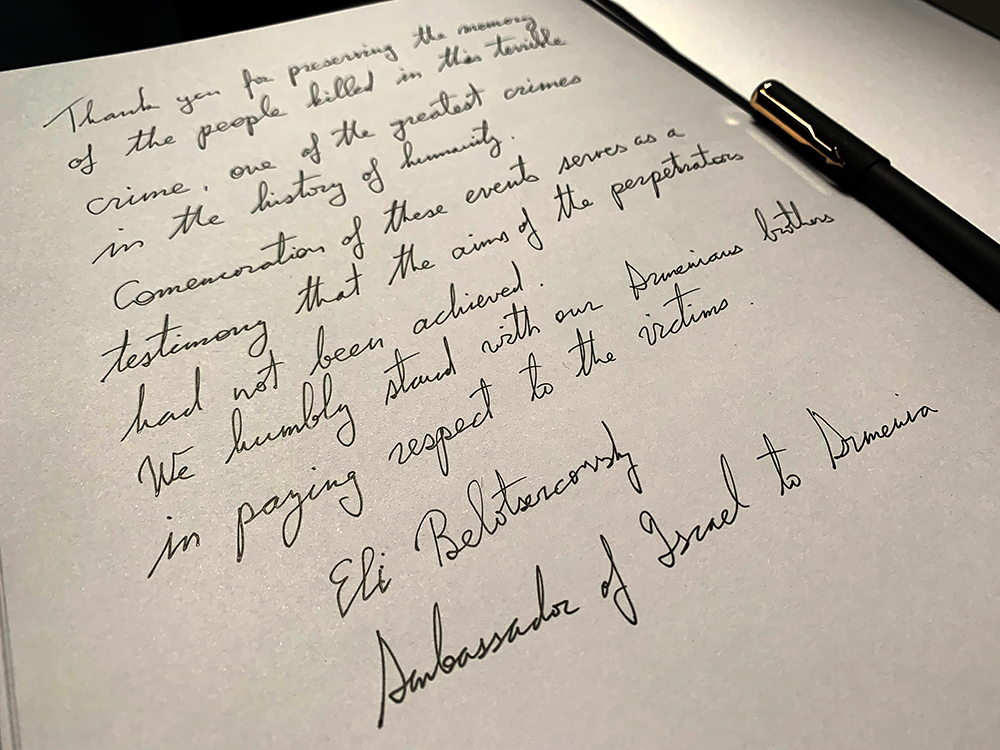 Thank you for preserving the memory
of the people killed in this terrible
crime, one of the greatest crimes
in the history of humanity.
Comemoration of these events serves as a
testimony that the aims of the perpetrators
had not been achieved.
We humbly stand with our Armenians brothers
in paying respect to the victims.
Eli Belotsercovsky
Ambassador of Israel to Armenia